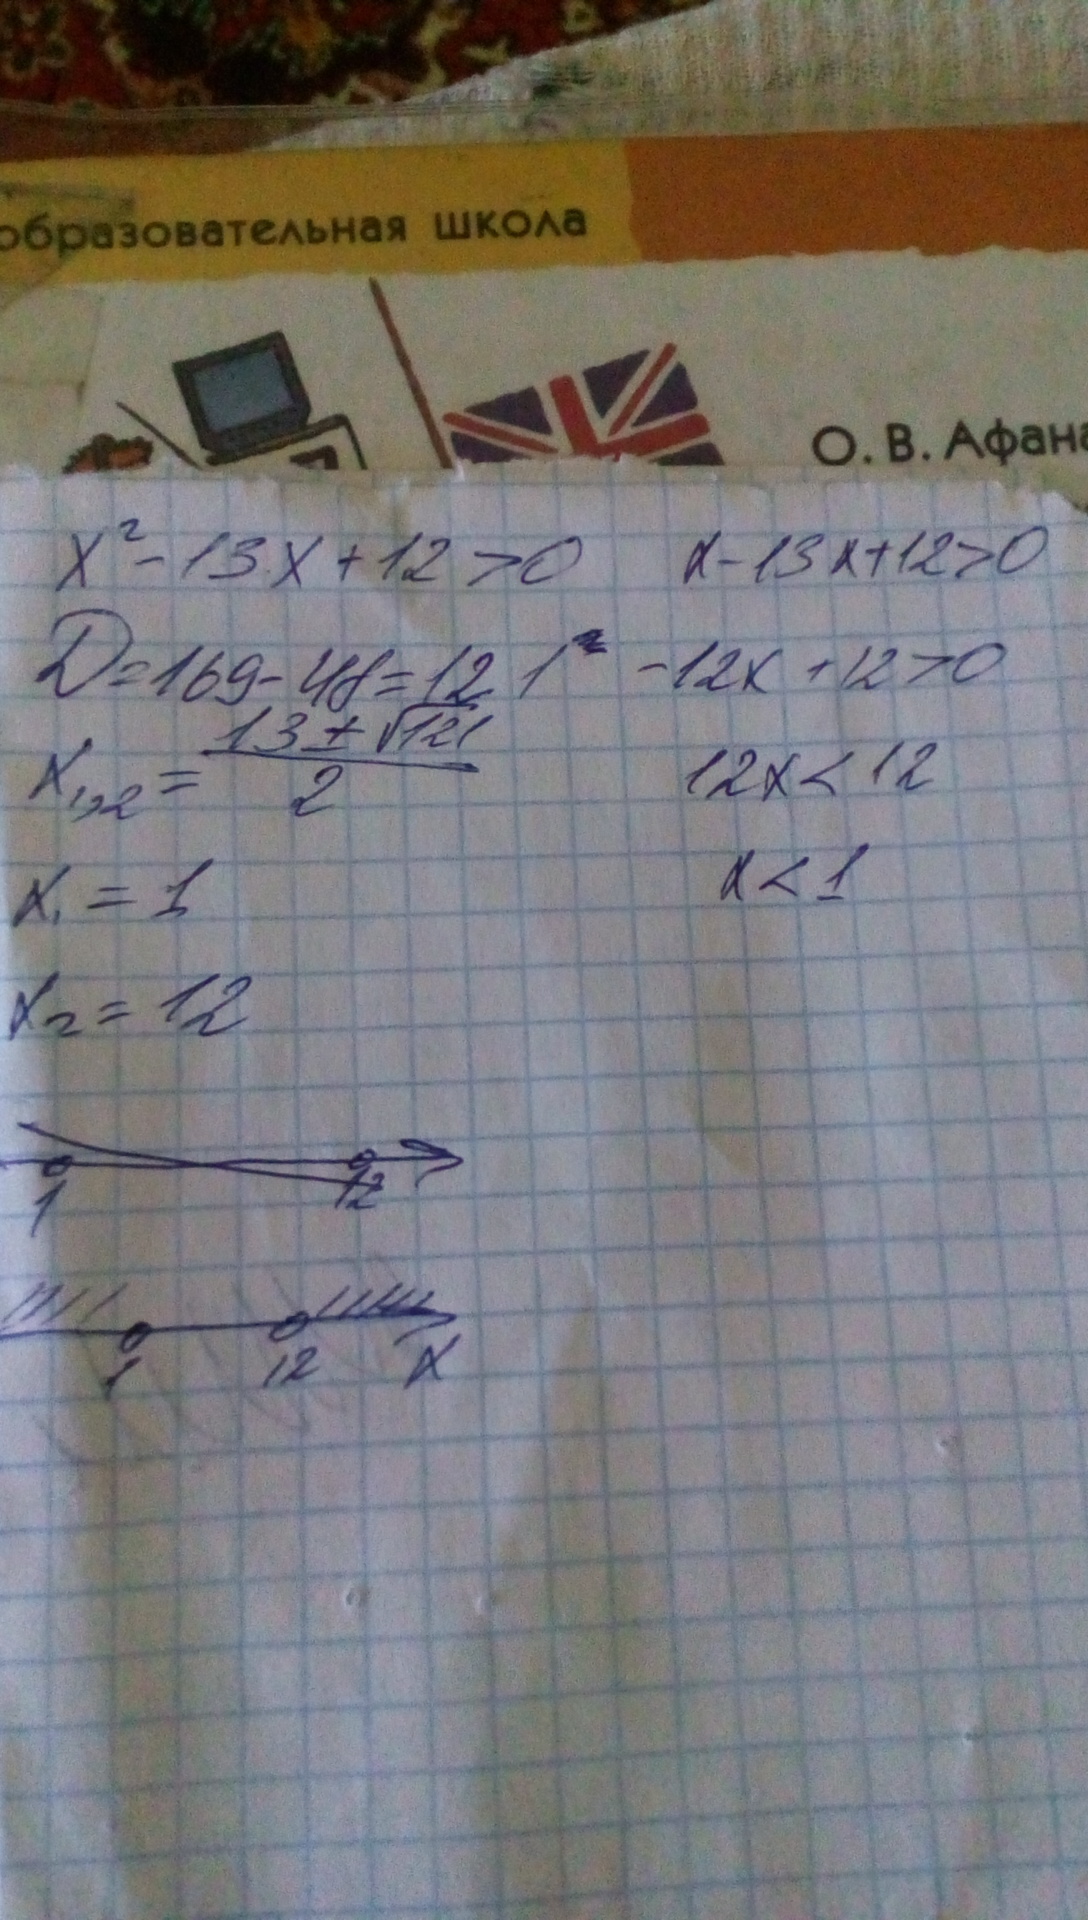 образовательная школа
О. В. Афана
x² - 13x + 12 > 0
D = 169 - 48 = 121
x₁,₂ = (13 ± √121) / 2
x₁ = 1
x₂ = 12
1 12
1 12 x
x - 13x + 12 > 0
-12x + 12 > 0
12x < 12
x < 1